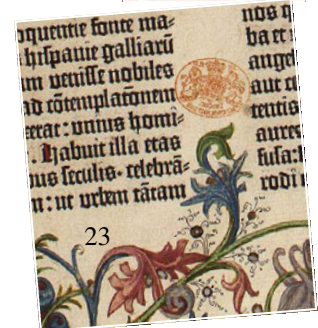 oquentie fonte ma-
hispanie galliarū
m venisse nobiles
ad cōtemplacōnem
erat: unius homi-
. Habuit illa etas
us seculis· celebrā-
n: ut urbem tātam
nos
ba et
angel
aut
aures
fusa:
rodi
23